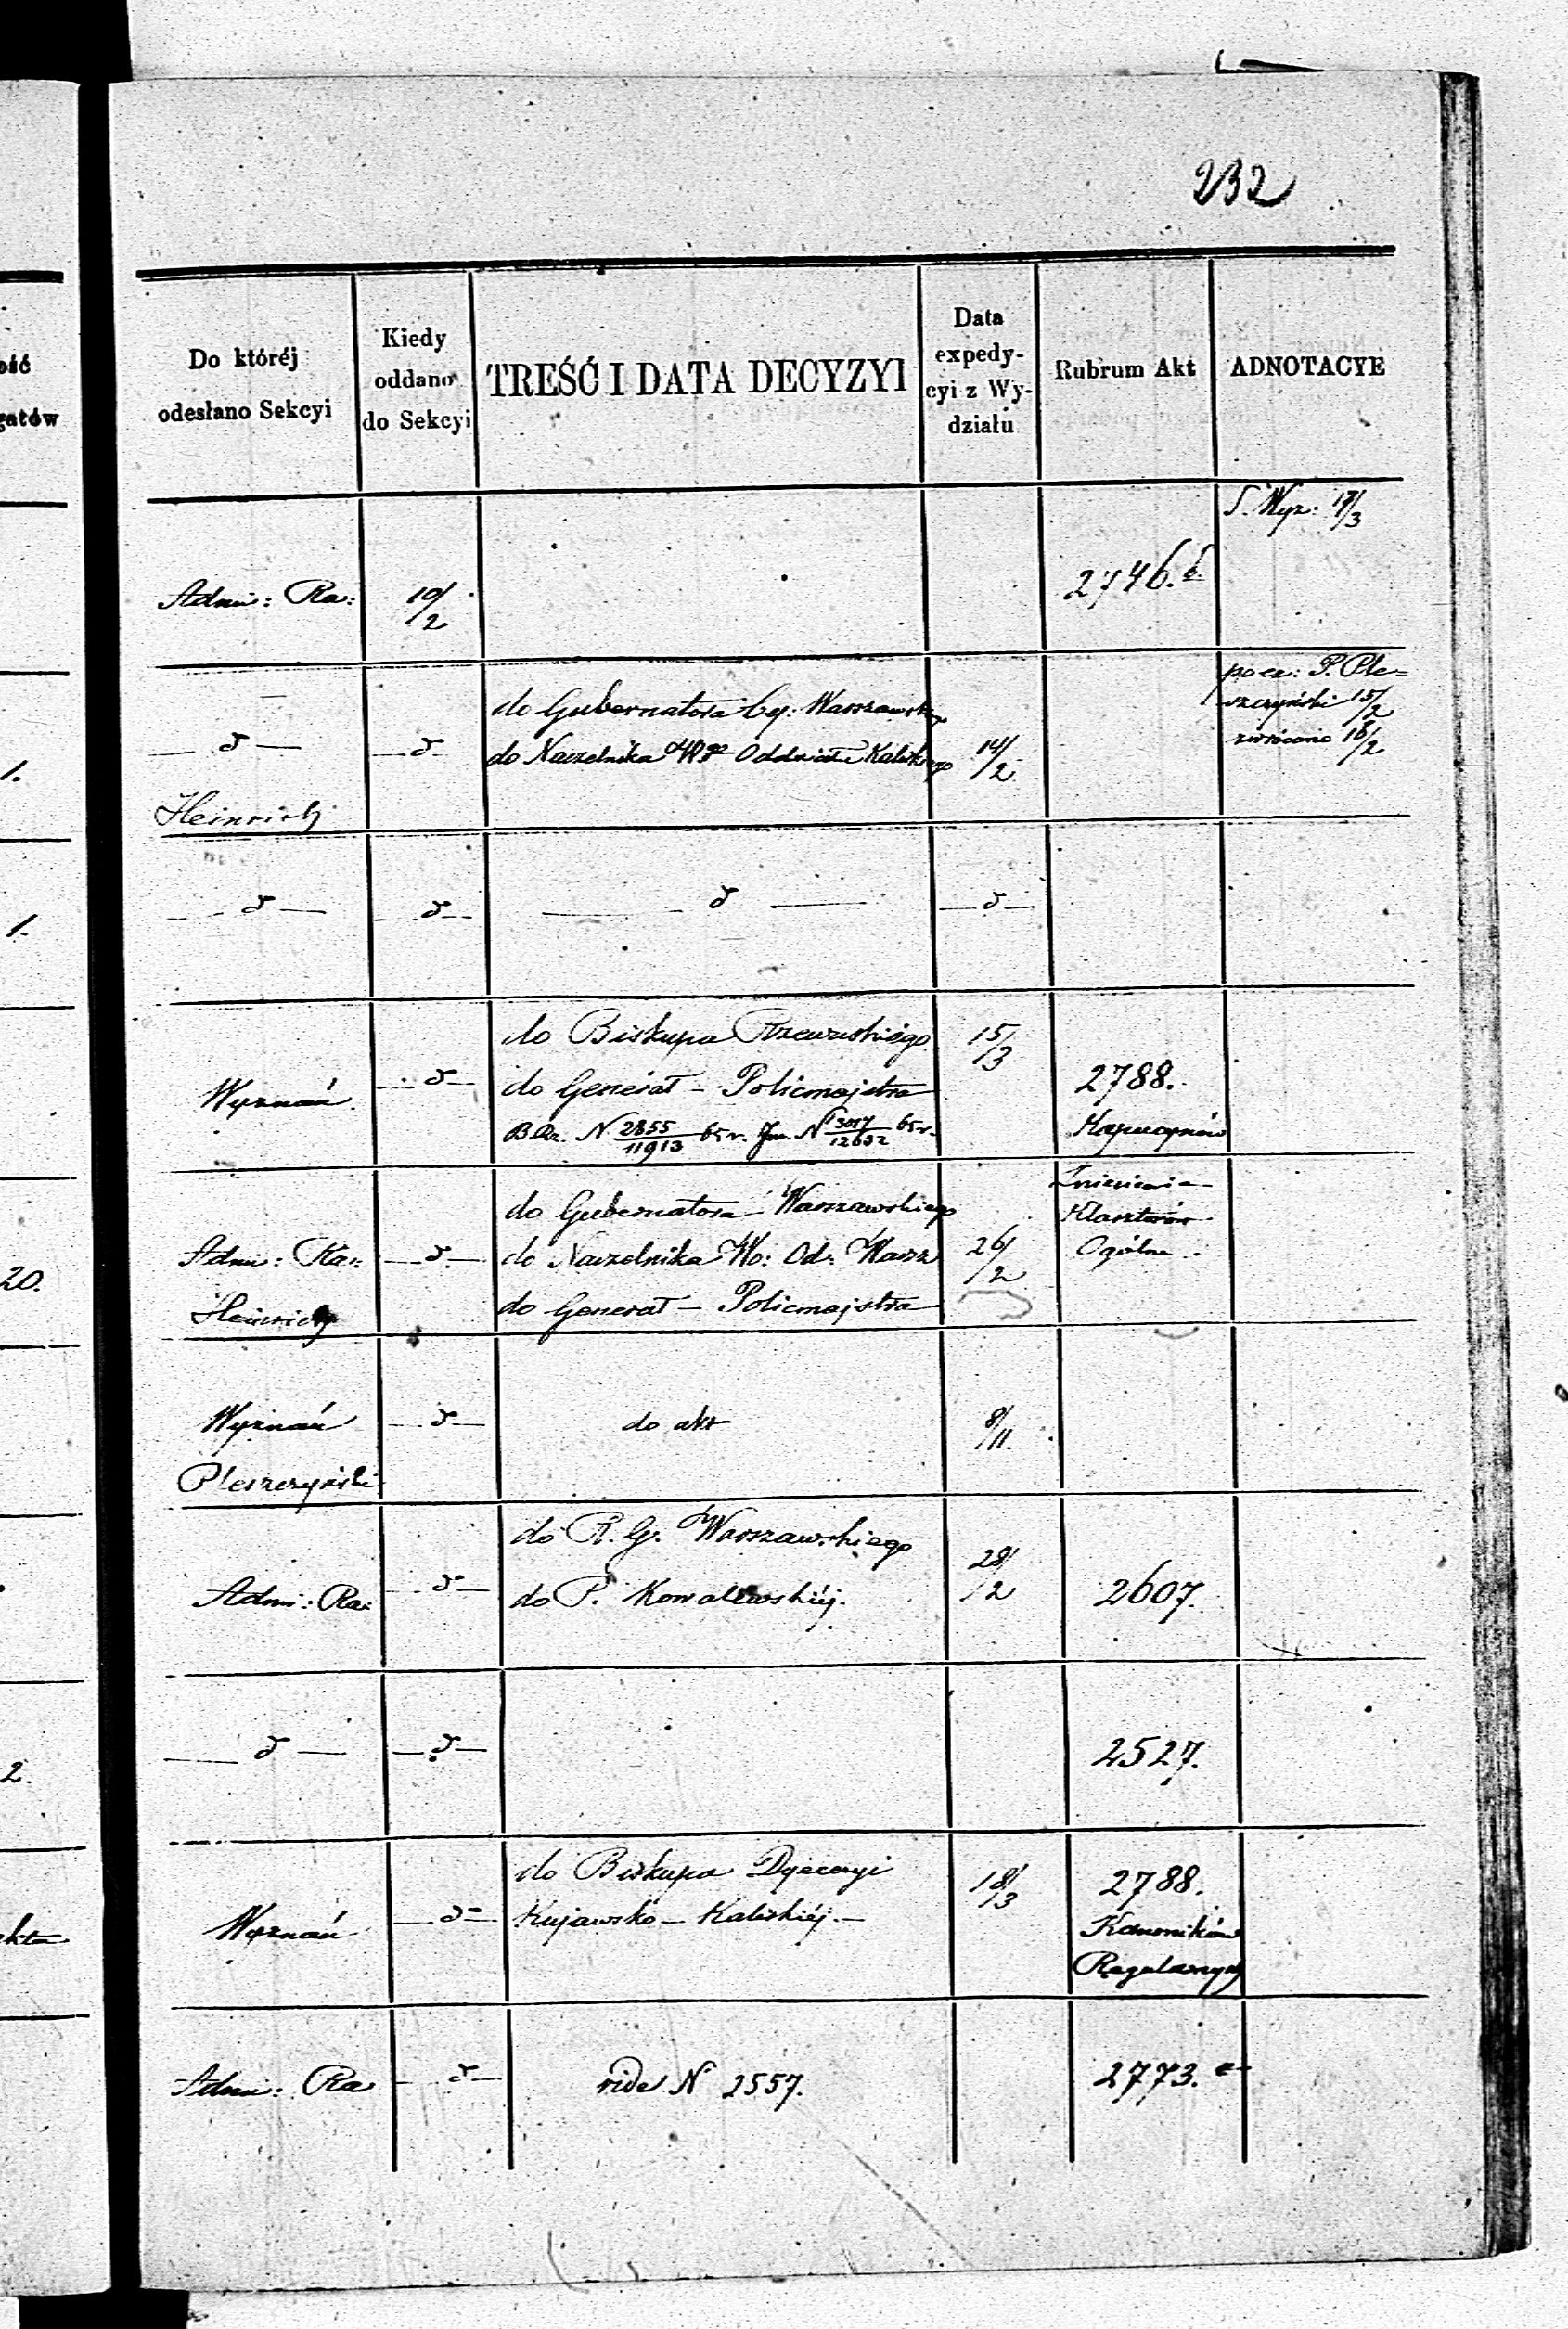 232
ość
gatów
Do któréj
odesłano Sekcyi
Kiedy
oddano
do Sekcyi
TREŚĆ I DATA DECYZYI
Data
expedy-
cyi z Wy-
działu
Rubrum Akt
ADNOTACYE
S. Wyz: 17/3
Adm: Ra:
10/2
2746.
1.
— d —
— d
Heinrich
do Gubernatora Cy: Warszawskiego
do Naczelnika Oddziału Kaliskiego
14/2
P. Ple=
szczyński 15/2
zwrócono 18/2
1.
— d —
— d —
— d —
— d —
Wyznań
— d —
do Biskupa Rzewuskiego
do Generał - Policmajstra
N 2855/11913 65 r. N 3017/12632 65 r.
15/3
2788.
Kapucynów
20.
Adm: Ra:
Heinrich
— d —
do Gubernatora Warszawskiego
do Naczelnika Wo: Od: Warsz
do Generał - Policmajstra
26/2
Zniesienie
Klasztorów
Ogólne
Wyznań
Pleszczyński
— d —
do akt
8/11.
Adm: Ra:
— d —
do R. G. Warszawskiego
do P. Kowalewskiéj.
28/2
2607.
2.
— d —
— d —
2527.
akta
Wyznań
— d —
do Biskupa Dyecezyi
Kujawsko - Kaliskiéj. —
18/3
2788.
Kanoników
Regularnych
Adm: Ra
— d —
vide N 2557.
2773.